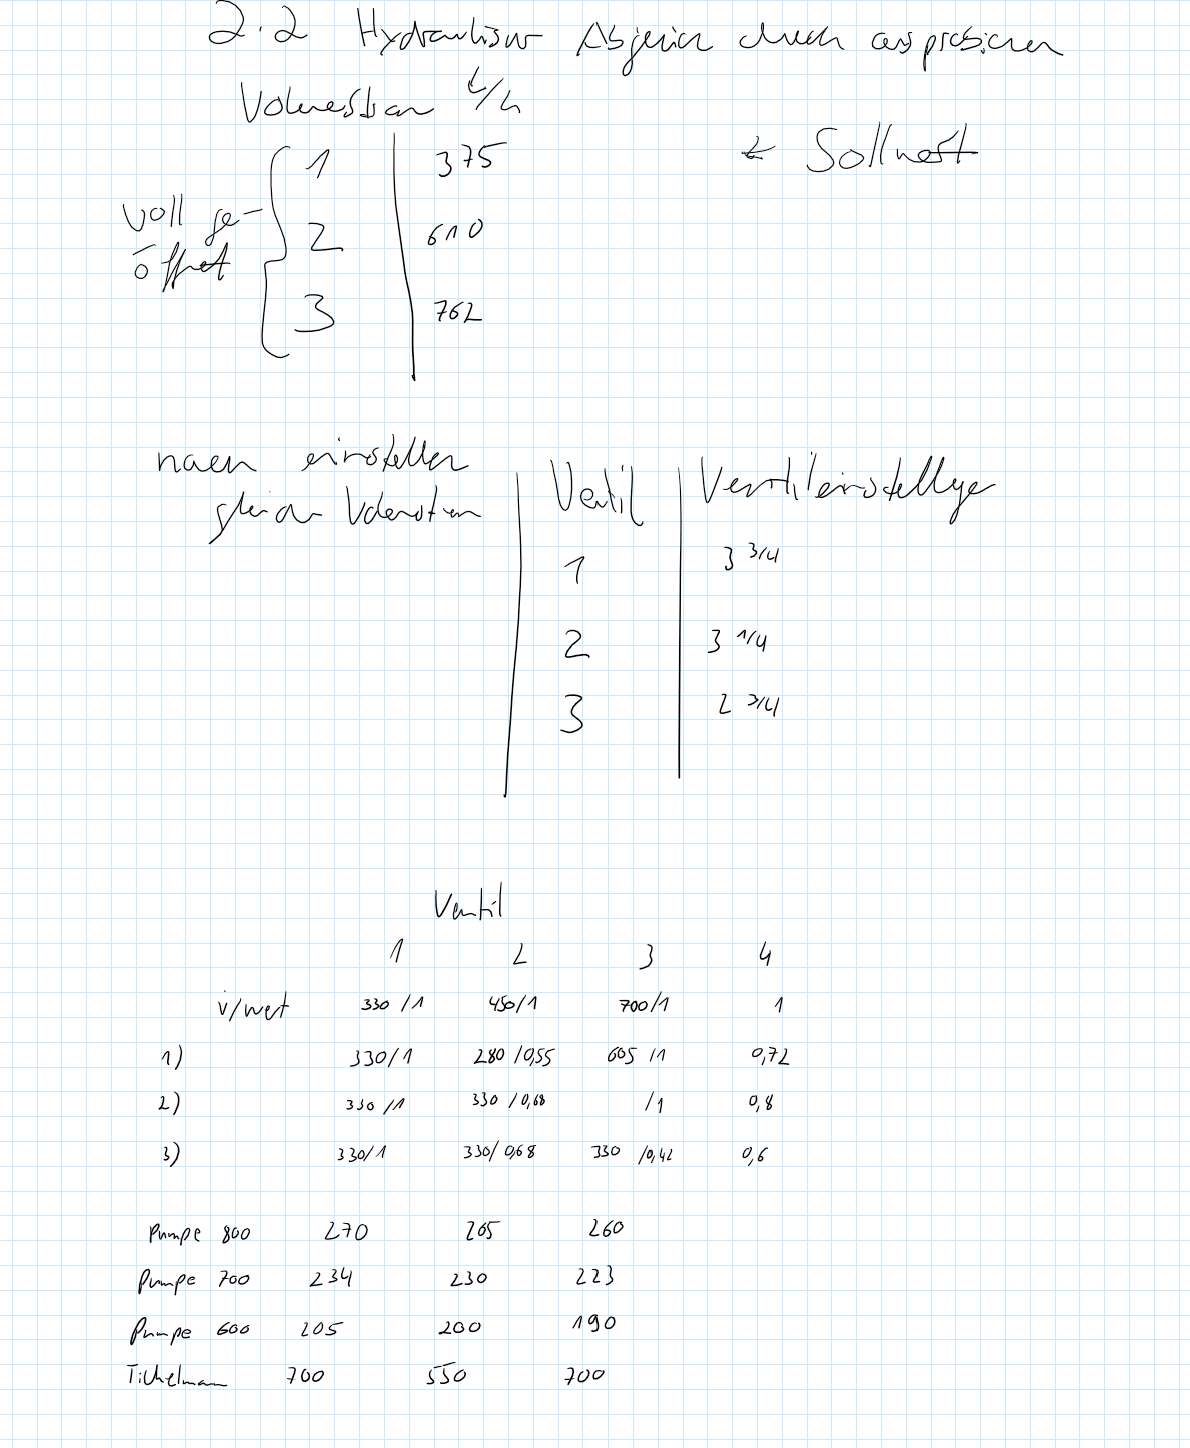 2.2 Hydraulischer Abgleich durch ausprobieren
Volumenstrom L/h
1 375
← Sollwert
voll ge-
öffnet
2 610
3 762
nach einstellen
gleicher Volumenstrom
Ventil Ventileinstellungen
1 3 3/4
2 3 1/4
3 2 3/4
Ventil
1 2 3 4
V̇/wert 330/1 450/1 700/1 1
1) 330/1 280/0,55 605/1 0,72
2) 330/1 330/0,68 /1 0,8
3) 330/1 330/0,68 330/0,42 0,6
Pumpe 800 270 265 260
Pumpe 700 234 230 223
Pumpe 600 205 200 190
Tichelmann 700 550 700